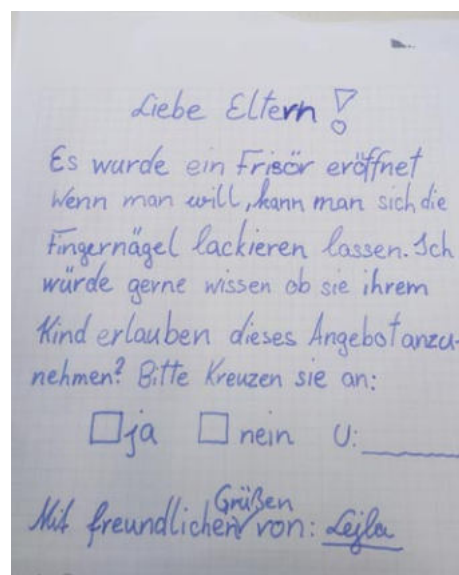 Liebe Eltern!
Es wurde ein Frisör eröffnet
Wenn man will, kann man sich die
Fingernägel lackieren lassen. Ich
würde gerne wissen ob sie ihrem
Kind erlauben dieses Angebot anzu-
nehmen? Bitte Kreuzen sie an:
ja nein U:
Mit freundlichen Grüßen von: Lejla